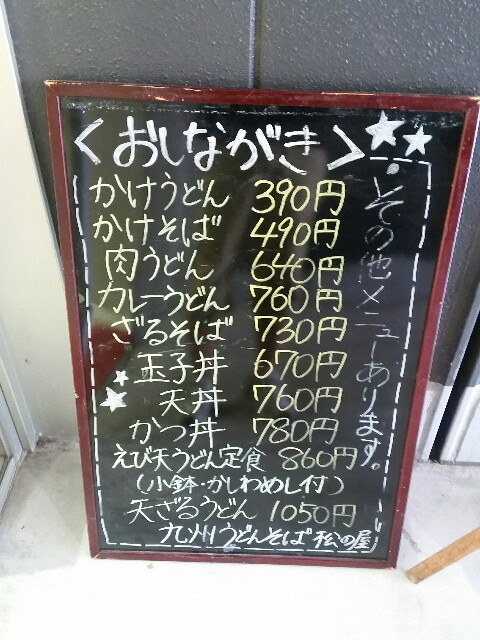 <おしながき>
かけうどん 390円
かけそば 490円
肉うどん 640円
カレーうどん 760円
ざるそば 730円
玉子丼 670円
天丼 760円
かつ丼 780円
えび天うどん定食 860円
(小鉢・かしわめし付)
天ざるうどん 1050円
九州うどんそば 松の屋
その他メニューあります。